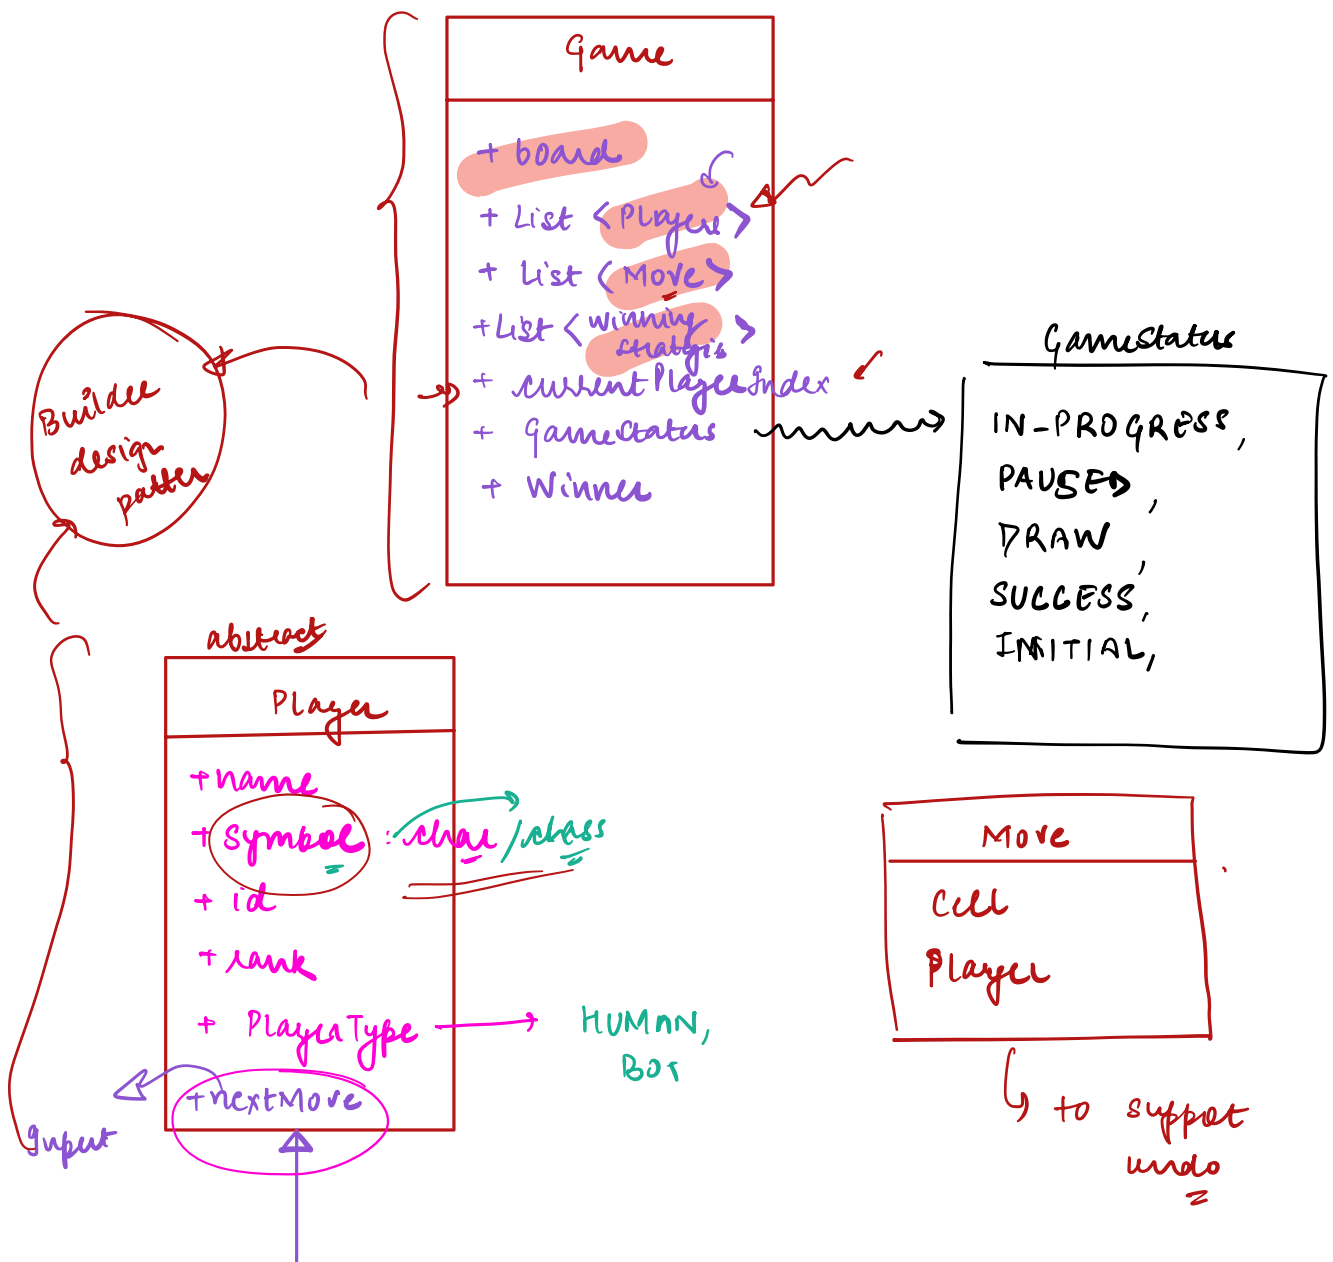 Game
+ board
+ List <Player>
+ List <Move>
+ List <winning
strategis>
+ currentPlayerIndex
+ GameStatus
+ Winner
Builder
design
patter
GameStatus
IN-PROGRESS,
PAUSED,
DRAW,
SUCCESS,
INITIAL,
abstract
Player
+ name
+ Symbol : char / class
+ id
+ rank
+ PlayerType
HUMAN,
BOT
+ nextMove
Input
Move
Cell
Player
to suppot
undo